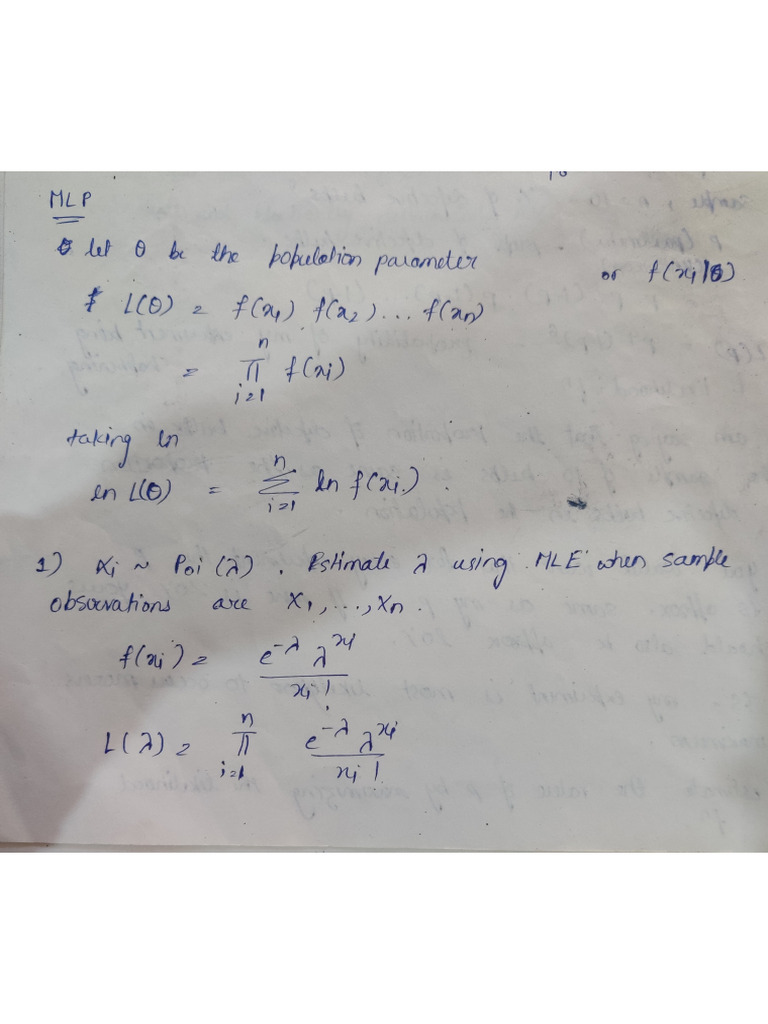 MLP
let θ be the population parameter
or f(xi|θ)
L(θ) = f(x1) f(x2)... f(xn)
= n ∏ i=1 f(xi)
taking ln
ln L(θ) = n ∑ i=1 ln f(xi).
1) Xi ~ Poi (λ). Estimate λ using MLE when sample
observations are X1,...,Xn.
f(xi) = e^-λ λ^xi / xi!
L(λ) = n ∏ i=1 e^-λ λ^xi / xi!